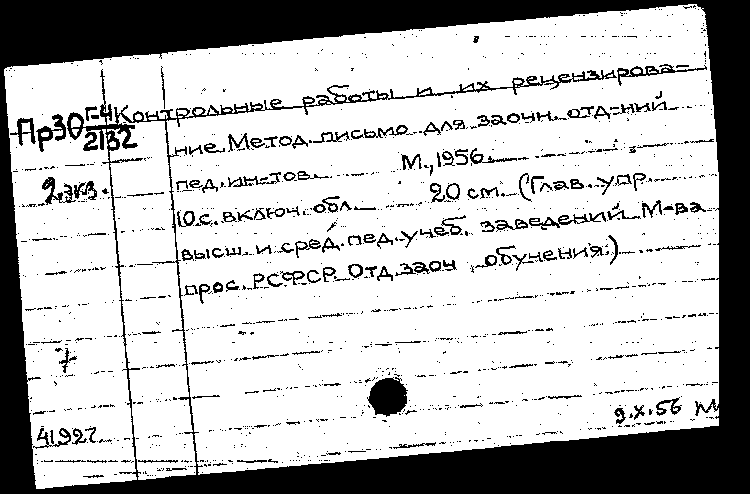 Пр30 Г-4 Контрольные работы и их рецензирова=
2132 ние. Метод. письмо для заочн. отд-ний
2.экз. пед. ин-тов. М., 1956.
10 с. включ. обл. 20 см. (Глав. упр.
высш. и сред. пед. учеб. заведений М-ва
прос. РСФСР. Отд. заоч. обучения.)
7
41927
9.X.56 М